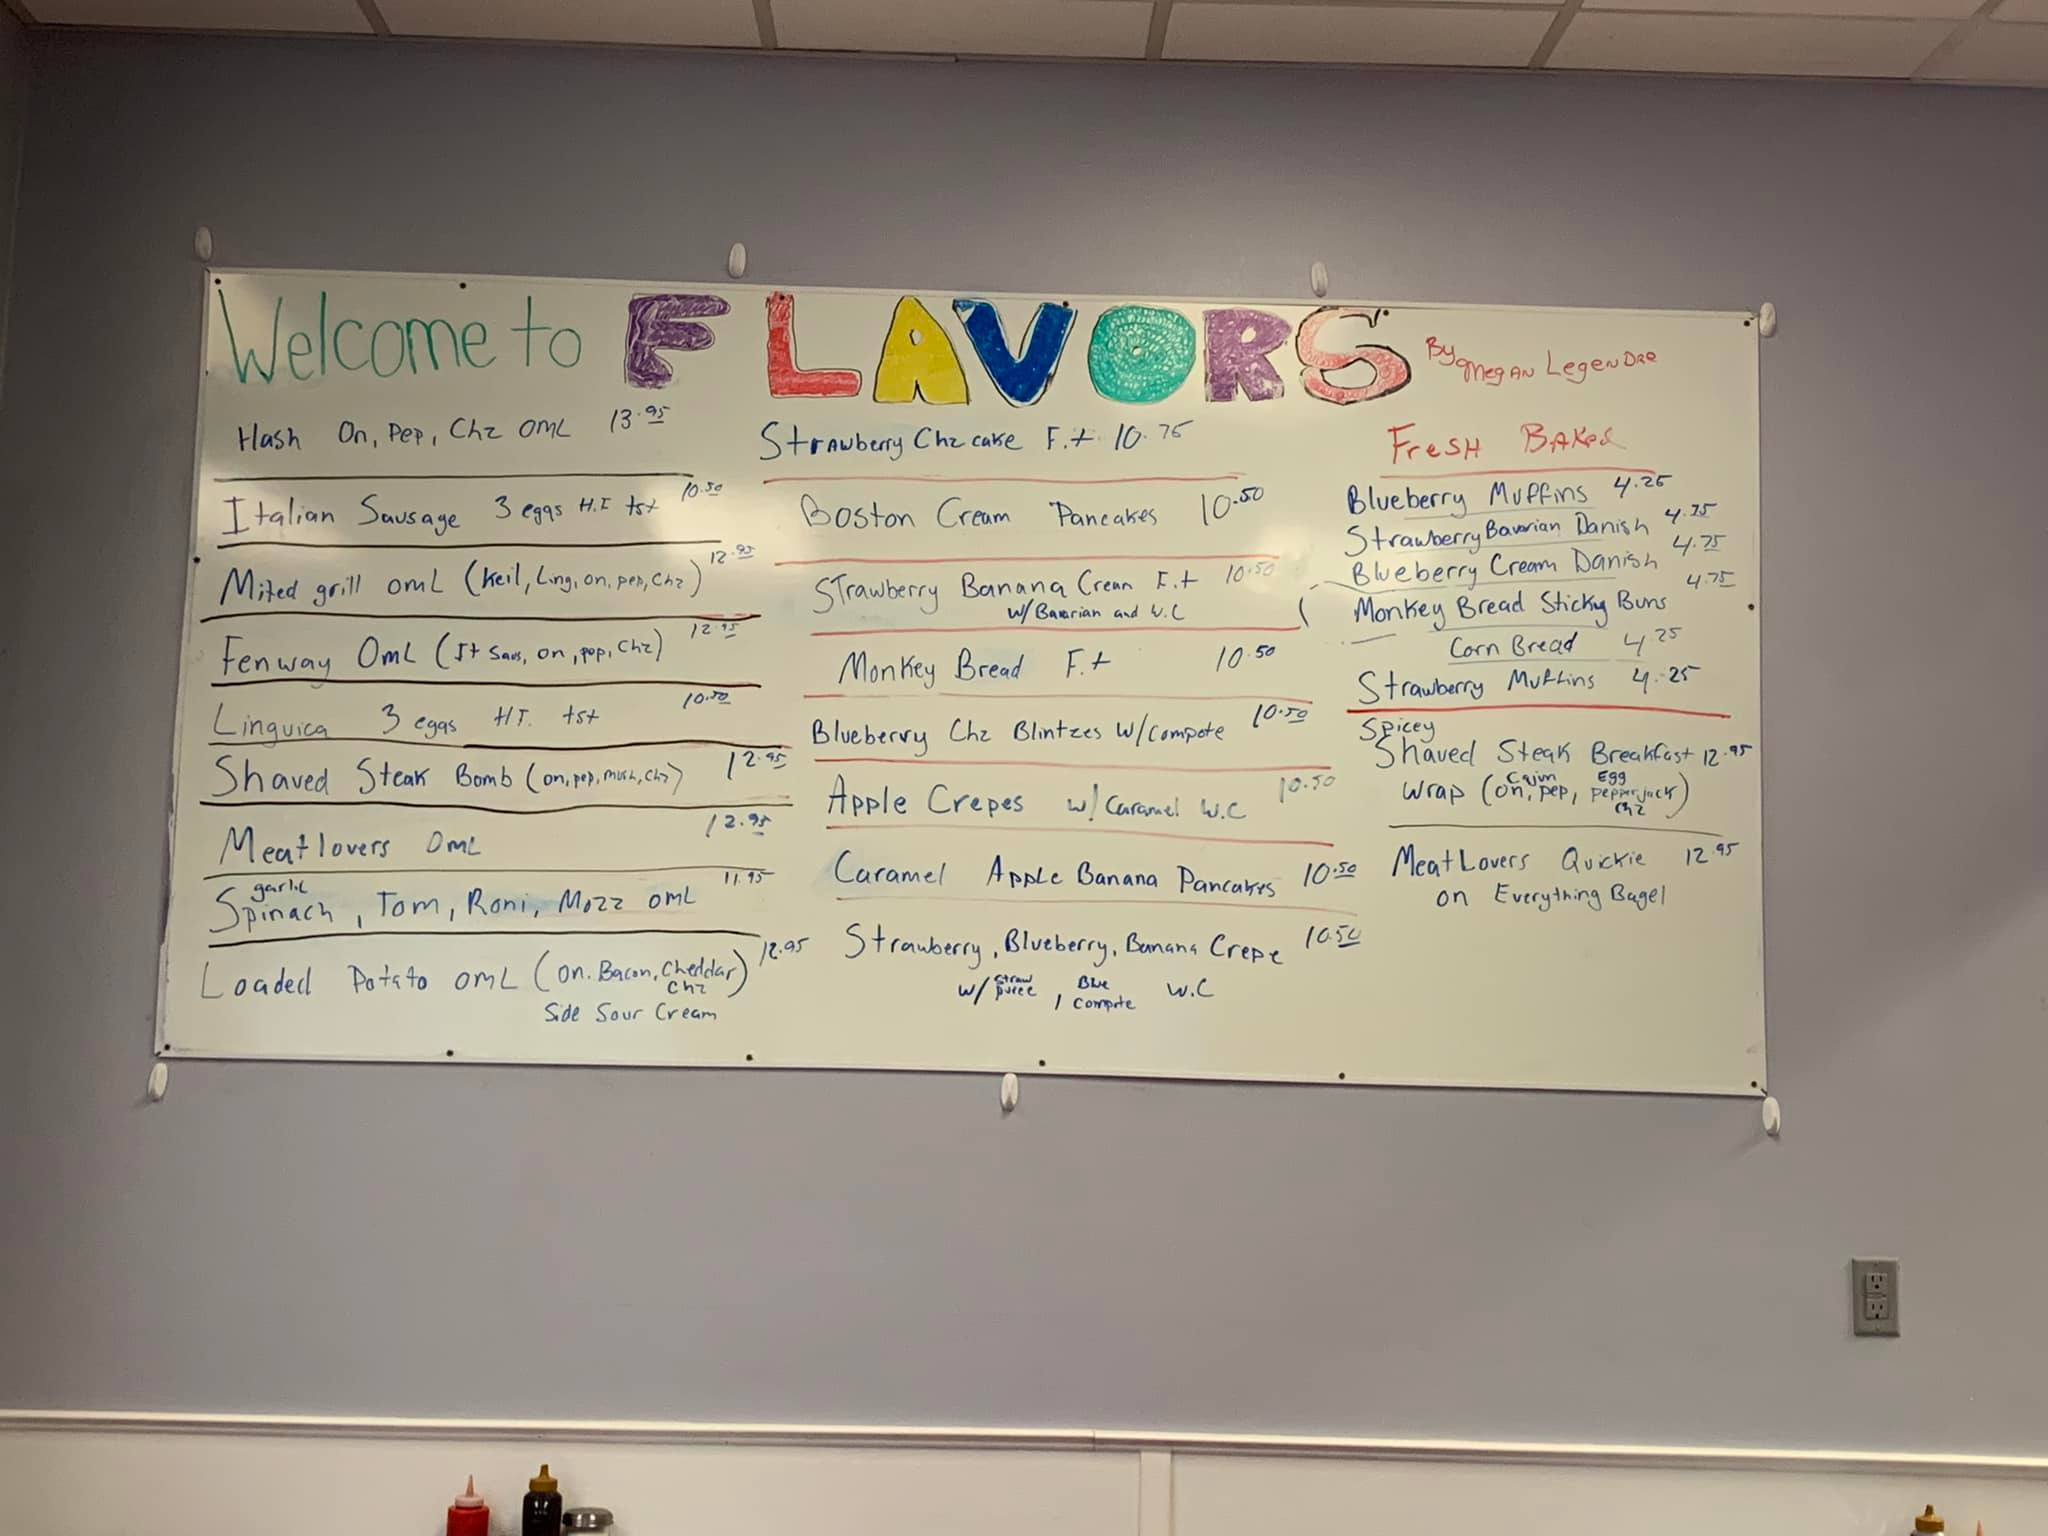 Welcome to FLAVORS By Megan Legendre
Hash On, Pep, Chz OML 13.95
Italian Sausage 3 eggs H.F tst 10.50
Mixed grill OML (Keil, Ling, on, pep, Chz) 12.95
Fenway OML (It Saus, on, pep, Chz) 12.95
Linguica 3 eggs H.F. tst 10.50
Shaved Steak Bomb (on, pep, mush, chz) 12.95
Meatlovers OML 12.95
garlic
Spinach, Tom, Roni, Mozz OML 11.95
Loaded Potato OML (on. Bacon, Cheddar) 12.95
Chz
Side Sour Cream
Strawberry Chz cake F.t 10.75
Boston Cream Pancakes 10.50
Strawberry Banana Cream F.t 10.50
w/Bavarian and W.C
Monkey Bread F.t 10.50
Blueberry Chz Blintzes w/compote 10.50
Apple Crepes w/ Caramel W.C 10.50
Caramel Apple Banana Pancakes 10.50
Strawberry, Blueberry, Banana Crepe 10.50
straw Blue
w/ puree, compote W.C
Fresh Baked
Blueberry Muffins 4.25
Strawberry Bavarian Danish 4.75
Blueberry Cream Danish 4.75
Monkey Bread Sticky Buns 4.75
Corn Bread 4.25
Strawberry Muffins 4.25
Spicey
Shaved Steak Breakfast 12.95
Cajun Egg
wrap (on, pep, pepperjack)
chz
MeatLovers Quickie 12.95
on Everything Bagel